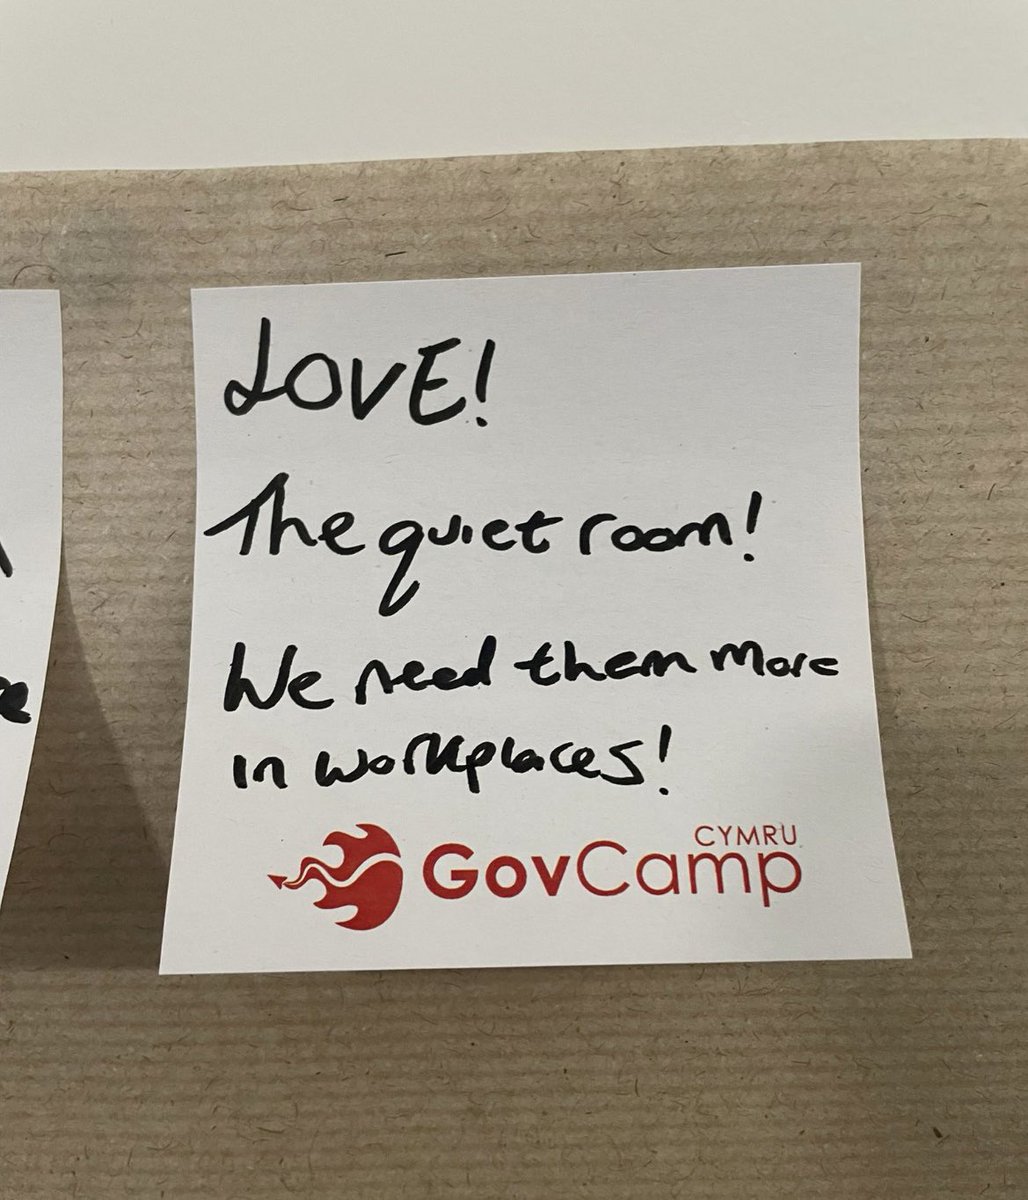 LOVE!
The quiet room!
We need them more
in workplaces!
CYMRU
GovCamp